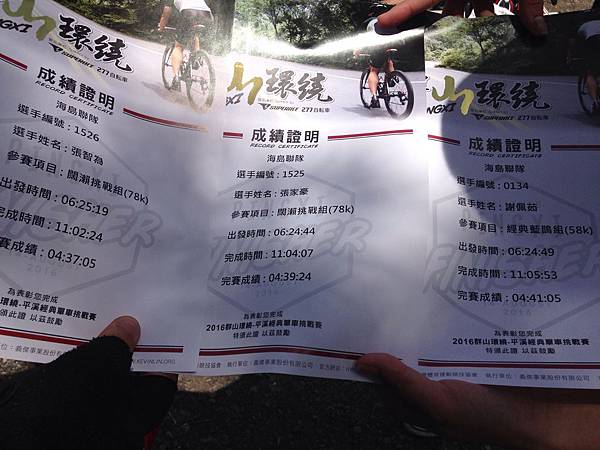 NGXI 山 環繞
277自転車
成績證明
RECORD CERTIFICATE
海島聯隊
選手編號 : 1526
選手姓名 : 張智為
參賽項目 : 闊瀨挑戰組(78k)
出發時間 : 06:25:19
完成時間 : 11:02:24
賽成績 : 04:37:05
2016
為表彰您完成
山環繞-平溪經典單車挑戰賽
頒此證 以茲鼓勵
單位 : 義傑事業股份有限
KEVINLIN.ORG
XI 山 環繞
277自転車
成績證明
RECORD CERTIFICATE
海島聯隊
選手編號 : 1525
選手姓名 : 張家豪
參賽項目 : 闊瀨挑戰組(78k)
出發時間 : 06:24:44
完成時間 : 11:04:07
完賽成績 : 04:39:24
為表彰您完成
2016群山環繞-平溪經典單車挑戰賽
特頒此證 以茲鼓勵
競技協會 執行單位 : 義傑事業股份有限公司
NGXI 山 環繞
277自転車
成績證明
RECORD CERTIFICATE
海島聯隊
選手編號 : 0134
選手姓名 : 謝佩茹
參賽項目 : 經典藍鵲組(58k)
出發時間 : 06:24:49
完成時間 : 11:05:53
完賽成績 : 04:41:05
2016
為表彰您完成
2016群山環繞-平溪經典單車挑戰賽
特頒此證 以茲鼓勵
執行單位 : 義傑事業股份有限公司